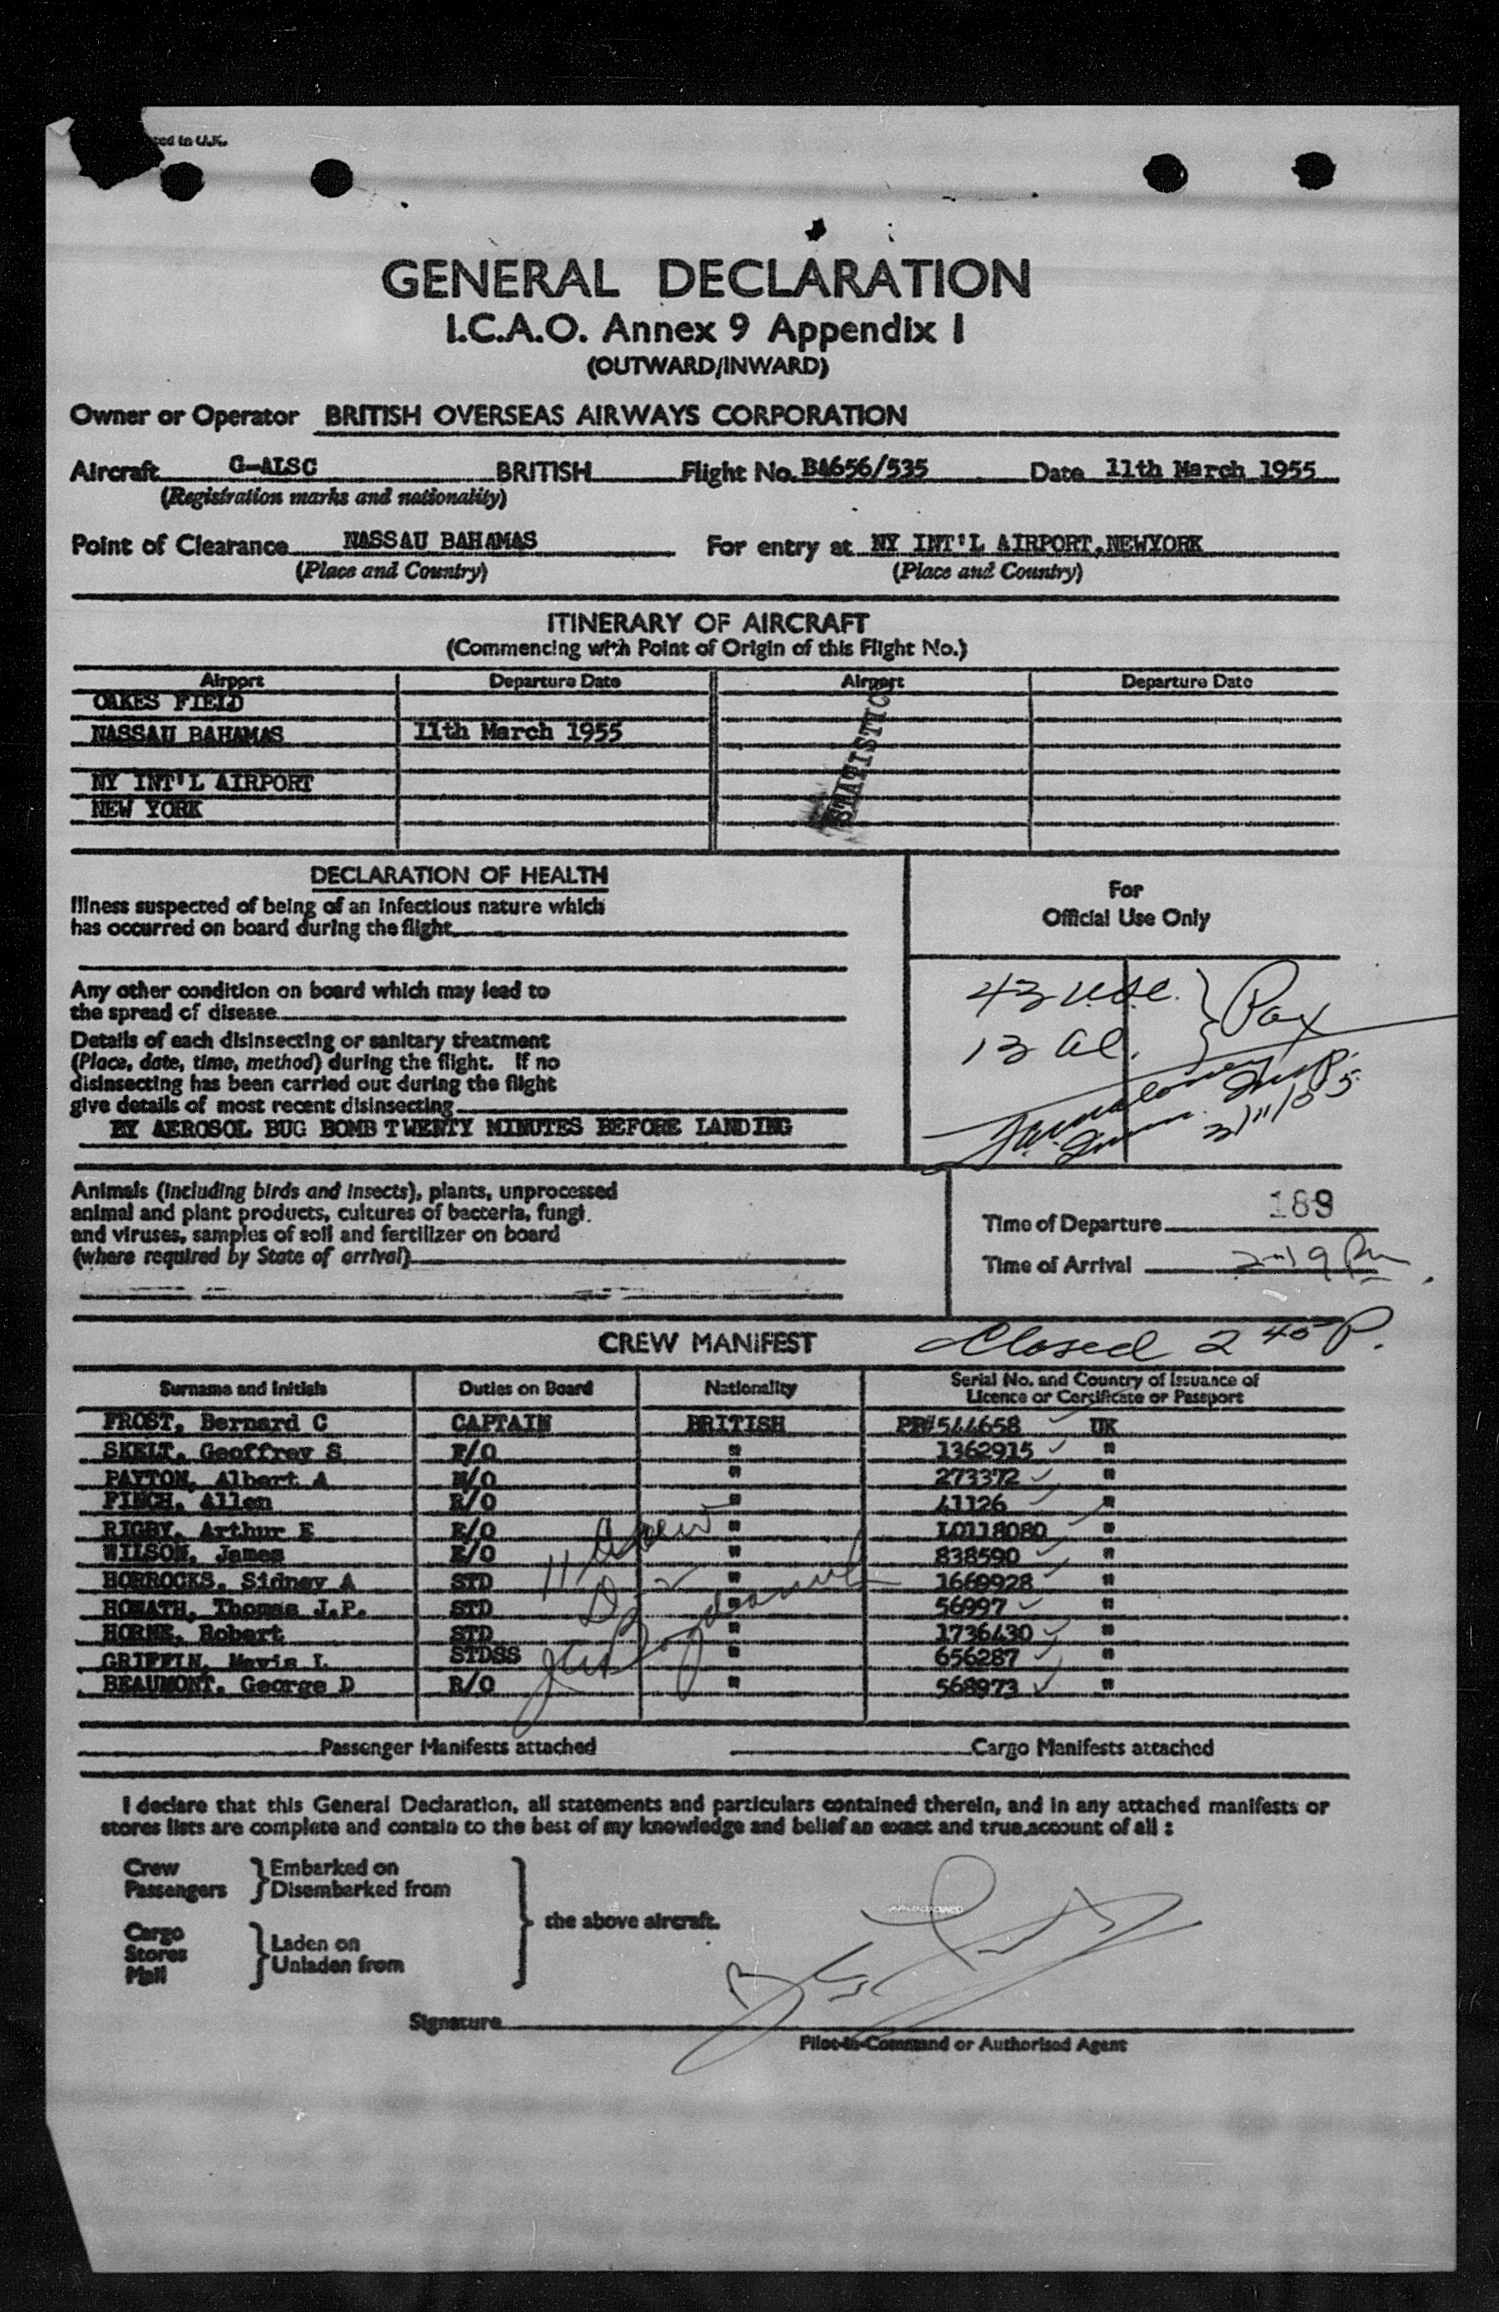 ted in U.K.
GENERAL DECLARATION
I.C.A.O. Annex 9 Appendix I
(OUTWARD/INWARD)
Owner or Operator BRITISH OVERSEAS AIRWAYS CORPORATION
Aircraft G-ALSC BRITISH Flight No. BA656/535 Date 11th March 1955
(Registration marks and nationality)
Point of Clearance NASSAU BAHAMAS For entry at NY INT'L AIRPORT,NEWYORK
(Place and Country) (Place and Country)
ITINERARY OF AIRCRAFT
(Commencing with Point of Origin of this Flight No.)
Airport Departure Date Airport Departure Date
OAKES FIELD
NASSAU BAHAMAS 11th March 1955
NY INT'L AIRPORT
NEW YORK
STATISTIC
DECLARATION OF HEALTH
Illness suspected of being of an infectious nature which
has occurred on board during the flight
Any other condition on board which may lead to
the spread of disease
Details of each disinsecting or sanitary treatment
(Place, date, time, method) during the flight. If no
disinsecting has been carried out during the flight
give details of most recent disinsecting
BY AEROSOL BUG BOMB TWENTY MINUTES BEFORE LANDING
For
Official Use Only
43 USC. } Pax
13 al.
Imm. Insp.
3/11/55
Animals (including birds and insects), plants, unprocessed
animal and plant products, cultures of bacteria, fungi
and viruses, samples of soil and fertilizer on board
(where required by State of arrival)
Time of Departure 189
Time of Arrival 2-19 Pm
Closed 2 45 P.
CREW MANIFEST
Surname and Initials Duties on Board Nationality Serial No. and Country of Issuance of
Licence or Certificate or Passport
FROST, Bernard C CAPTAIN BRITISH PP#544658 UK
SKELT, Geoffrey S F/O " 1362915 "
PAYTON, Albert A N/O " 273372 "
FINCH, Allen R/O " 41126 "
RIGBY, Arthur E E/O " L0118080 "
WILSON, James E/O " 838590 "
HORROCKS, Sidney A STD " 1669928 "
HOWATH, Thomas J.P. STD " 56997 "
HORNE, Robert STD " 1736430 "
GRIFFIN, Mavis L STDSS " 656287 "
BEAUMONT, George D R/O " 568973 "
11 Crew
Passenger Manifests attached Cargo Manifests attached
I declare that this General Declaration, all statements and particulars contained therein, and in any attached manifests or
stores lists are complete and contain to the best of my knowledge and belief an exact and true account of all :
Crew } Embarked on
Passengers } Disembarked from
} the above aircraft.
Cargo
Stores } Laden on
Mail } Unladen from
Signature
Pilot-in-Command or Authorised Agent